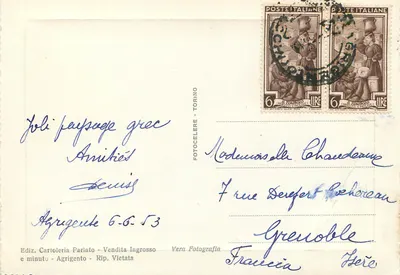 POSTE ITALIANE
POSTE ITALIANE
6 LIRE
6 LIRE
Joli paysage grec
Amitiés
Denise
Agrigente 6-6-53
FOTOCELERE - TORINO
Mademoiselle Chaudeaux
7 rue Rochereau
Grenoble
Francia Isère
Ediz. Cartoleria Pariato - Vendita Ingrosso
e minuto - Agrigento - Rip. Vietata
Vera Fotografia